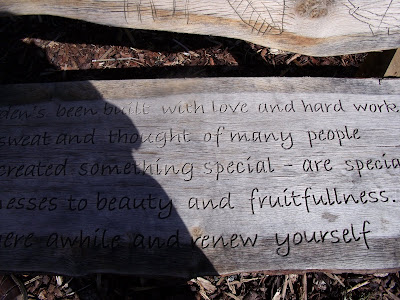 den's been built with love and hard work,
sweat and thought of many people
created something special - are special
nesses to beauty and fruitfullness.
here awhile and renew yourself